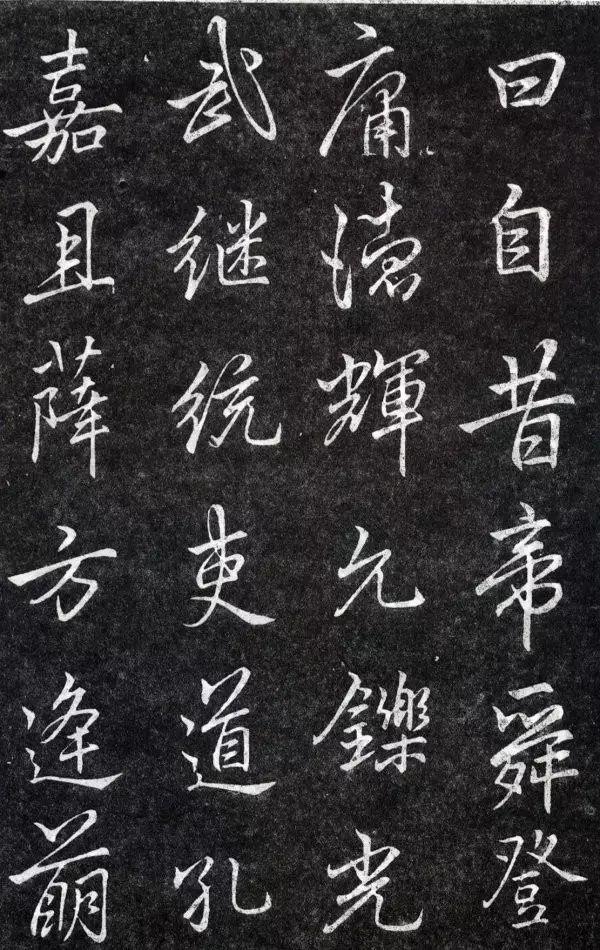 曰自昔帝舜登
庸德輝允鑠光
武继統吏道孔
嘉且薛方逢萌